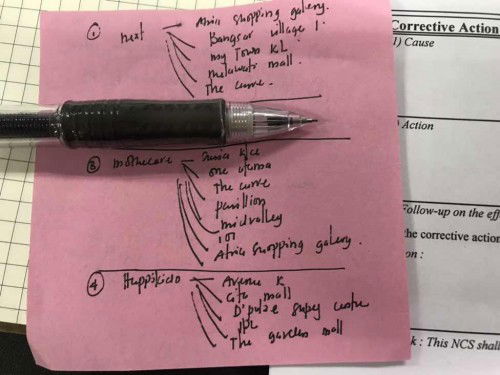 ① next — Atria Shopping gallery.
Bangsar village 1.
my Town KL
melawati mall.
The curve.
③ mothercare — Suria KLCC
one utama
The curve
pavillion
midvalley
101
Atria Shopping gallery.
④ Happikiddo — Avenue K
city mall
D'pulze
The gardens mall
Corrective Action
) Cause
) Action
Follow-up on the eff
the corrective action
on :
k : This NCS shall